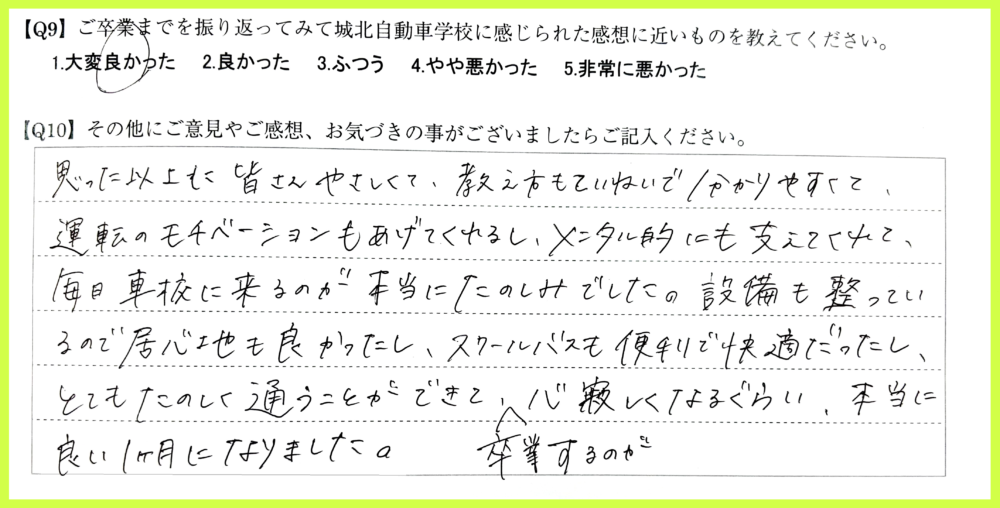 【Q9】ご卒業までを振り返ってみて城北自動車学校に感じられた感想に近いものを教えてください。
1.大変良かった 2.良かった 3.ふつう 4.やや悪かった 5.非常に悪かった
【Q10】その他にご意見やご感想、お気づきの事がございましたらご記入ください。
思った以上に皆さんやさしくて、教え方もていねいで分かりやすくて、
運転のモチベーションもあげてくれるし、メンタル的にも支えてくれて、
毎日車校に来るのが本当にたのしみでした。設備も整ってい
るので居心地も良かったし、スクールバスも便利で快適だったし、
とてもたのしく通うことができて、心寂しくなるぐらい、本当に
良い1ヶ月になりました。 卒業するのが